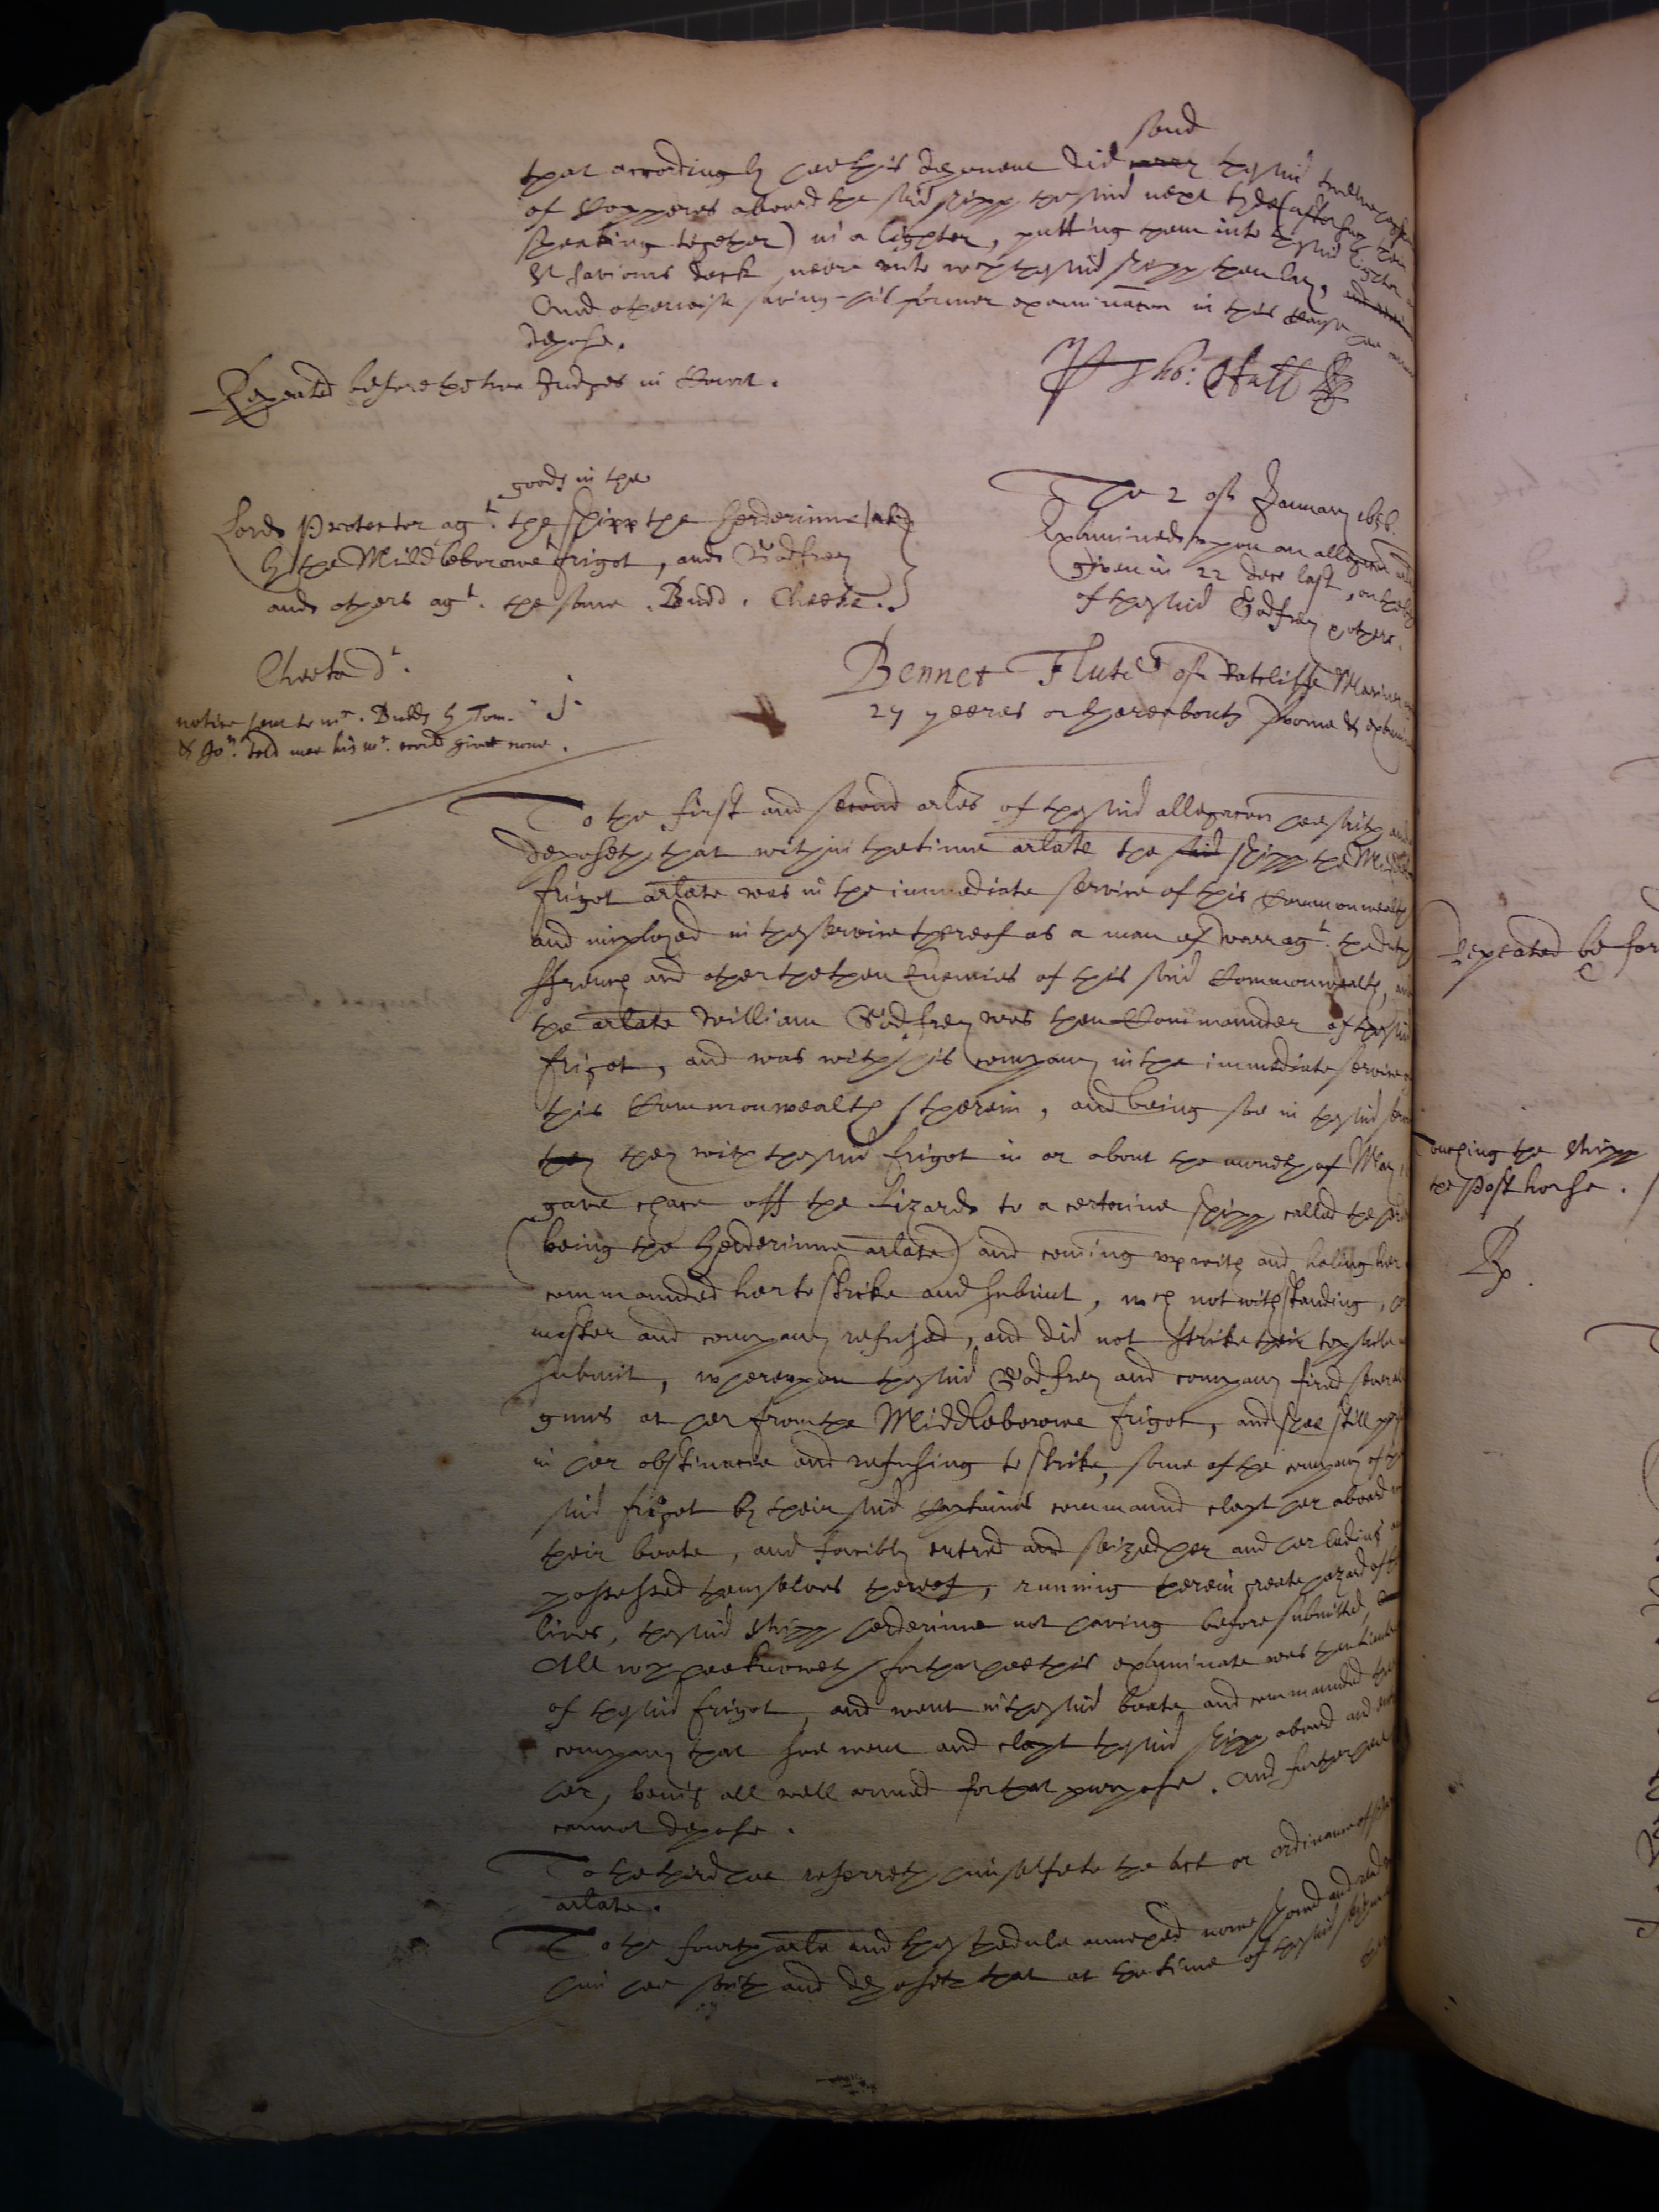 send
that accordingly hee this deponent did carry the said twelve caske
of Coppores aboard the said shipp the said next tyde (after
speaking together) in a lighter, putting them into the said lighter
St Saviours dock neere unto wch the said shipp then lay,
And otherwise saving his former examinacon in this cause hee cannot
depose.
Repeated before the two Judges in Court.
Tho: Hall
goods in the
Lord Protector agt. the shipp the Herderinne taken
by the Middleborowe frigot, and Godfrey
and others agt. the same. Budd. Cheeke.
The 2 of January 1656.
Examined upon an allegacon
given in 22 dece last, on the behalfe
of the said Godfrey & others.
Cheeke dt.
notice sent to mr. Budds by Tom.
& Jon. told mee his mr. would give none.
j.
Bennet Flute of Ratcliffe Mariner
27 yeeres or thereabouts sworne & examined
To the first and second arles of the said allegacon hee saith and
deposeth that within the time arlate the said shipp the Middle
frigot arlate was in the immediate service of this Commonwealth
and imployed in the service thereof as a man of warr agt. the
ffrench and other the then Enemies of this said Commonwealth, and
the arlate William Godfrey was then Commaunder of the said
frigot, and was with his company in the immediate service of
this Commonwealth therein, and being soe in the said service
they they with the said frigot in or about the moneth of May
gave chace off the Lizard to a certaine shipp called the
(being the Herderinne arlate) and coming up with and haling her
commaunded her to strike and submit, wch notwithstanding,
master and company refused, and did not strike their topsaile
submit, whereupon the said Godfrey and company fired severall
guns at her from the Middleborowe frigot, and shee still
in her obstinacie and refusing to strike, some of the company of the
said frigot by their said Captaines commaund clapt her aboard
their boate, and forcibly entred and seized her and her lading and
possessed themselves thereof, running therein greate hazard of their
lives, the said shipp herderinne not having before submitted,
All wch hee knoweth for that hee this examinate was then Lieutenant
of the said frigot, and went in the said boate and commaunded the
company that soe went and clapt the said shipp aboard and
her, being all well armed for that purpose. And further hee
cannot depose.
To the third hee referreth himselfe to the act or ordinance of
arlate.
To the fourth arle and the schedule annexed nowe showed and read
him hee saith and deposeth that at the time of the said seizure
Repeated before
Touching the shipp
the Post horse.
Rp.